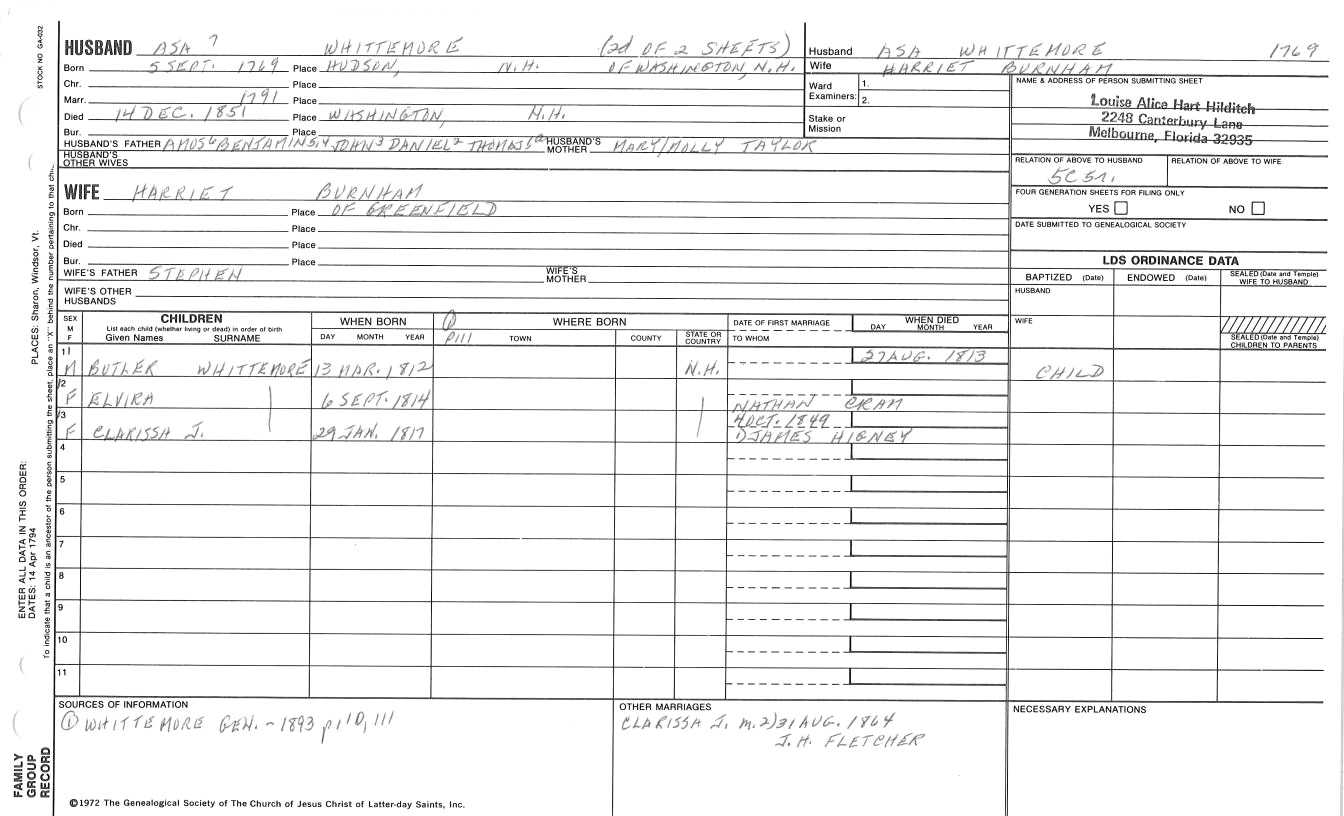 STOCK NO GA-032
HUSBAND ASA 7 WHITTEMORE (2d OF 2 SHEETS)
Born 5 SEPT. 1769 Place HUDSON, N.H. OF WASHINGTON, N.H.
Chr. Place
Marr. 1791 Place
Died 14 DEC. 1851 Place WASHINGTON, N.H.
Bur. Place
HUSBAND'S FATHER AMOS 6 BENJAMIN 5,4 JOHN 3 DANIEL 2 THOMAS HUSBAND'S MOTHER MARY/MOLLY TAYLOR
HUSBAND'S OTHER WIVES
WIFE HARRIET BURNHAM
Born Place OF GREENFIELD
Chr. Place
Died Place
Bur. Place
WIFE'S FATHER STEPHEN WIFE'S MOTHER
WIFE'S OTHER HUSBANDS
Husband ASA WHITTEMORE 1769
Wife HARRIET BURNHAM
Ward Examiners: 1.
2.
Stake or Mission
NAME & ADDRESS OF PERSON SUBMITTING SHEET
Louise Alice Hart Hilditch
2248 Canterbury Lane
Melbourne, Florida 32935
RELATION OF ABOVE TO HUSBAND RELATION OF ABOVE TO WIFE
FOUR GENERATION SHEETS FOR FILING ONLY
YES NO
DATE SUBMITTED TO GENEALOGICAL SOCIETY
LDS ORDINANCE DATA
BAPTIZED (Date) ENDOWED (Date) SEALED (Date and Temple) WIFE TO HUSBAND
HUSBAND
WIFE
SEALED (Date and Temple) CHILDREN TO PARENTS
SEX M F
CHILDREN
List each child (whether living or dead) in order of birth
Given Names SURNAME
WHEN BORN
DAY MONTH YEAR
① p111
WHERE BORN
TOWN COUNTY STATE OR COUNTRY
DATE OF FIRST MARRIAGE
TO WHOM
WHEN DIED
DAY MONTH YEAR
1 M BUTLER WHITTEMORE 13 MAR. 1812 N.H. 27 AUG. 1813 CHILD
2 F ELVIRA 6 SEPT. 1814 NATHAN CRAM
3 F CLARISSA J. 29 JAN. 1817 4 OCT. 1849
1) JAMES HIGNEY
4
5
6
7
8
9
10
11
SOURCES OF INFORMATION
① WHITTEMORE GEN. - 1893 p110, 111
OTHER MARRIAGES
CLARISSA J. m. 2) 31 AUG. 1864
J. H. FLETCHER
NECESSARY EXPLANATIONS
©1972 The Genealogical Society of The Church of Jesus Christ of Latter-day Saints, Inc.
FAMILY GROUP RECORD
ENTER ALL DATA IN THIS ORDER:
DATES: 14 Apr 1794
PLACES: Sharon, Windsor, Vt.
To indicate that a child is an ancestor of the person submitting the sheet, place an "X" behind the number pertaining to that